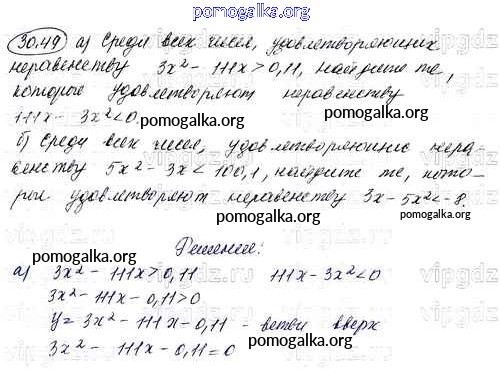 pomogalka.org
30.49 а) Среди всех чисел, удовлетворяющих
неравенству 3x² - 111x > 0,11, найдите те,
pomogalka.org
которые удовлетворяют неравенству
111x - 3x² < 0.
pomogalka.org
б) Среди всех чисел, удовлетворяющих нера-
венству 5x² - 3x < 100,1, найдите те, кото-
рые удовлетворяют неравенству 3x - 5x² < -8.
pomogalka.org
Решение:
а) 3x² - 111x > 0,11 111x - 3x² < 0
pomogalka.org
3x² - 111x - 0,11 > 0
y = 3x² - 111x - 0,11 - ветви вверх
3x² - 111x - 0,11 = 0
pomogalka.org